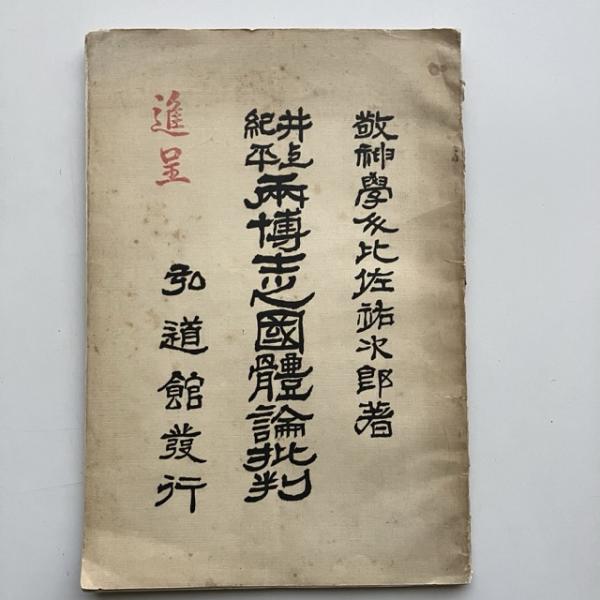 敬神學友比佐祐次郎著
井上
紀平
兩博士之國體論批判
進呈
弘道館發行